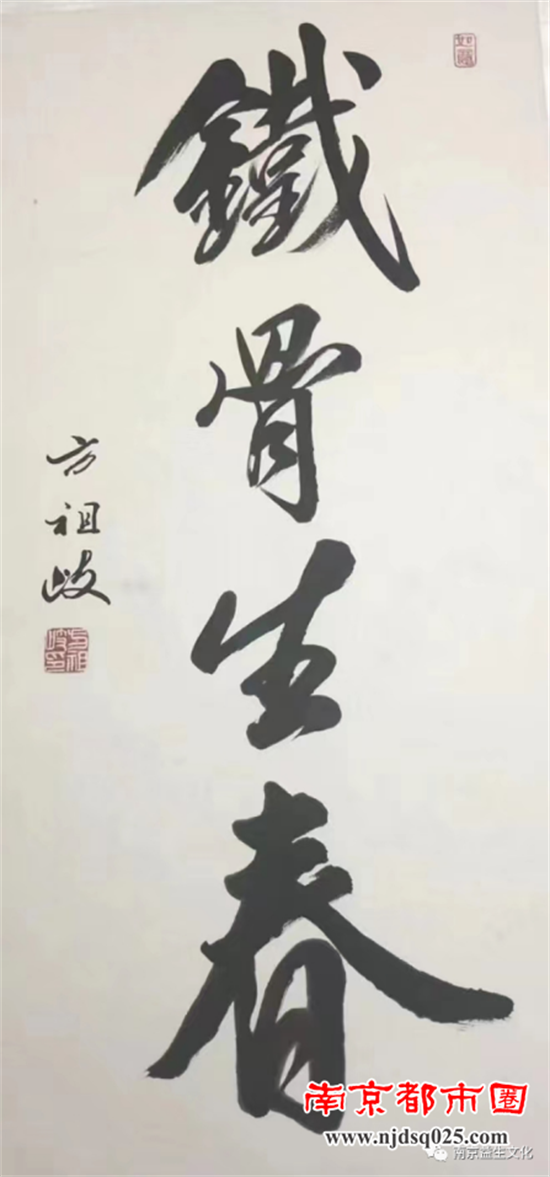 鐵骨生春
方祖岐
方祖岐印
南京都市圈
www.njdsq025.com
南京益生文化